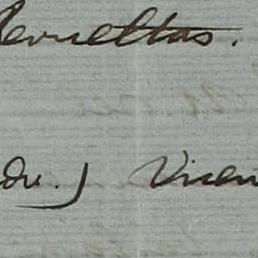 Revueltas.
dr.) Vicen